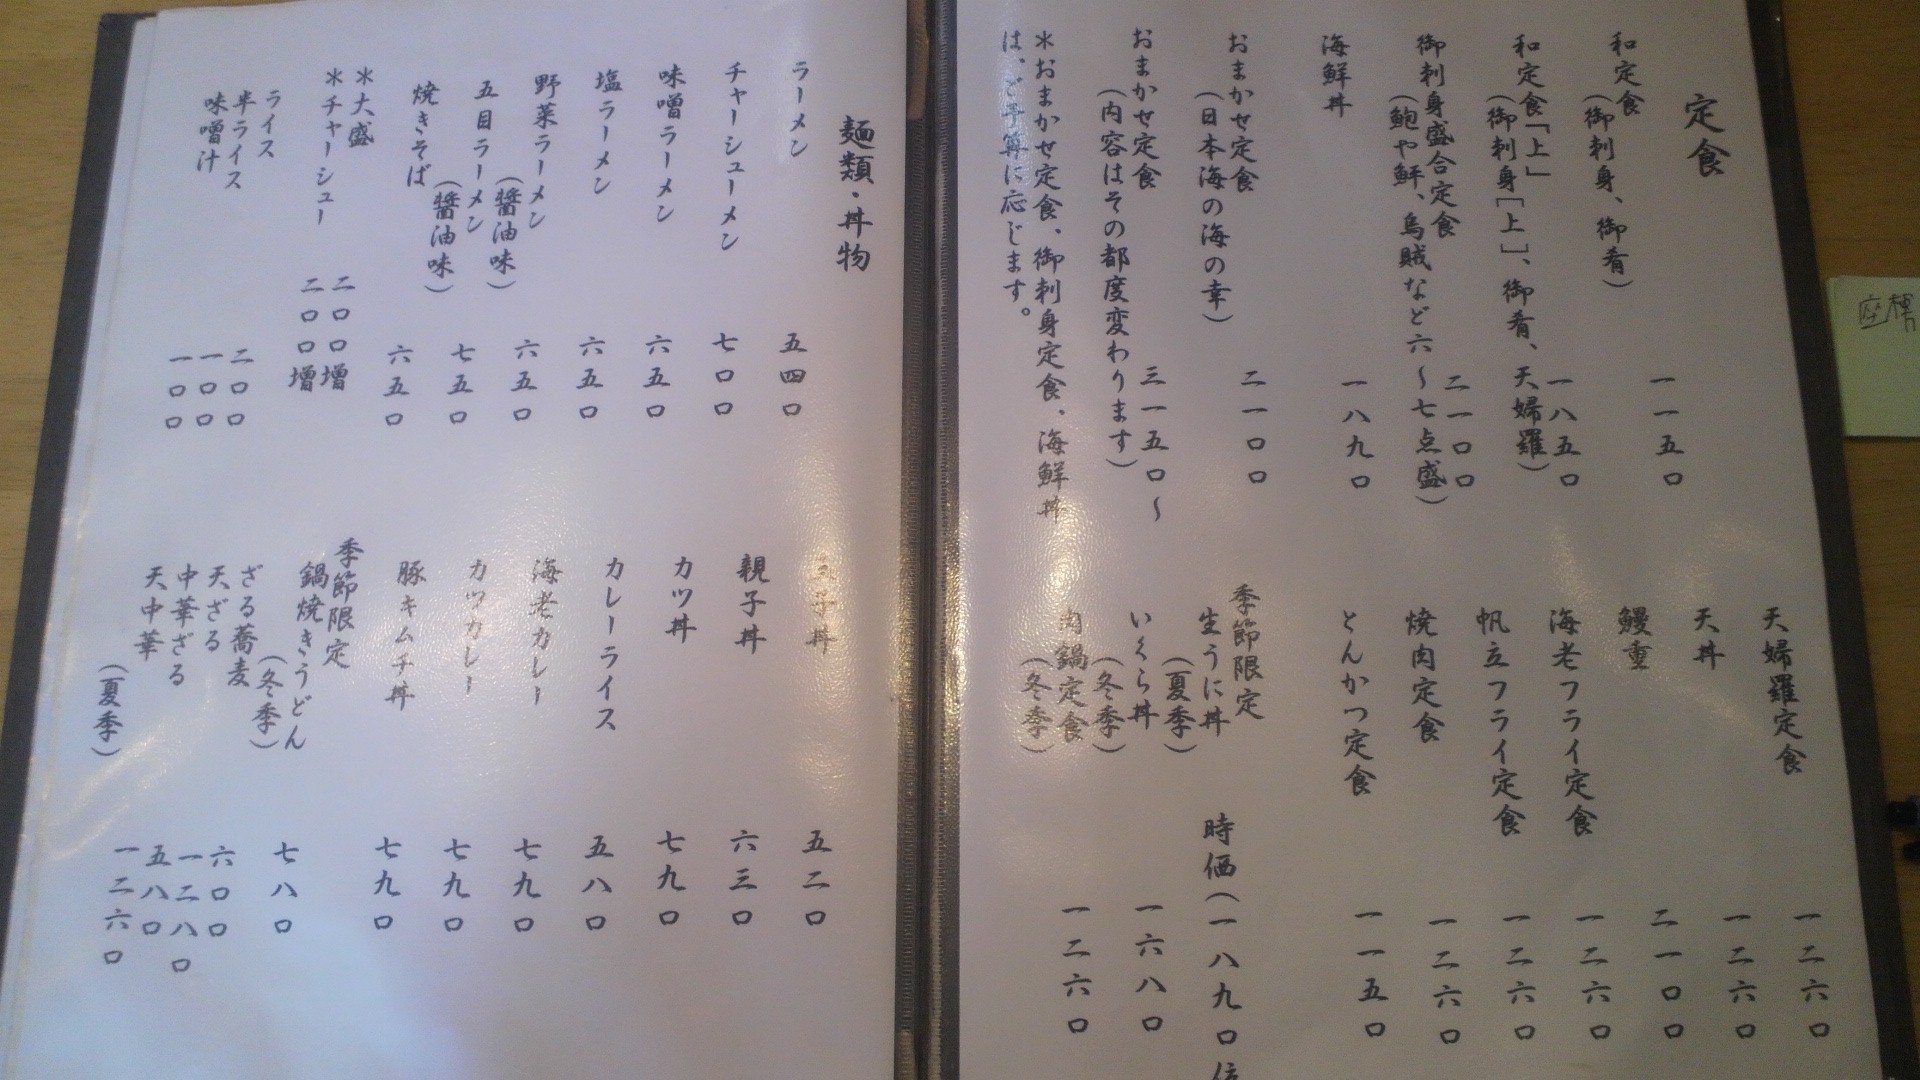 定食
和定食
（御刺身、御肴）
一一五〇
和定食「上」
（御刺身［上］、御肴、天婦羅）
一八五〇
御刺身盛合定食
（鮑や鮃、烏賊など六～七点盛）
二一〇〇
海鮮丼
一八九〇
おまかせ定食
（日本海の海の幸）
二一〇〇
おまかせ定食
（内容はその都度変わります）
三一五〇～
＊おまかせ定食、御刺身定食、海鮮丼
は、ご予算に応じます。
天婦羅定食
一二六〇
天丼
一二六〇
鰻重
二一〇〇
海老フライ定食
一二六〇
帆立フライ定食
一二六〇
焼肉定食
一二六〇
とんかつ定食
一一五〇
季節限定
生うに丼
（夏季）
時価（一八九〇位
いくら丼
（冬季）
一六八〇
肉鍋定食
（冬季）
一二六〇
麺類・丼物
ラーメン
五四〇
チャーシューメン
七〇〇
味噌ラーメン
六五〇
塩ラーメン
六五〇
野菜ラーメン
（醤油味）
六五〇
五目ラーメン
（醤油味）
七五〇
焼きそば
六五〇
＊大盛
二〇〇増
＊チャーシュー
二〇〇増
ライス
二〇〇
半ライス
一〇〇
味噌汁
一〇〇
玉子丼
五二〇
親子丼
六三〇
カツ丼
七九〇
カレーライス
五八〇
海老カレー
七九〇
カツカレー
七九〇
豚キムチ丼
七九〇
季節限定
鍋焼きうどん
（冬季）
七八〇
ざる蕎麦
六〇〇
天ざる
一二八〇
中華ざる
五八〇
天中華
（夏季）
一二六〇